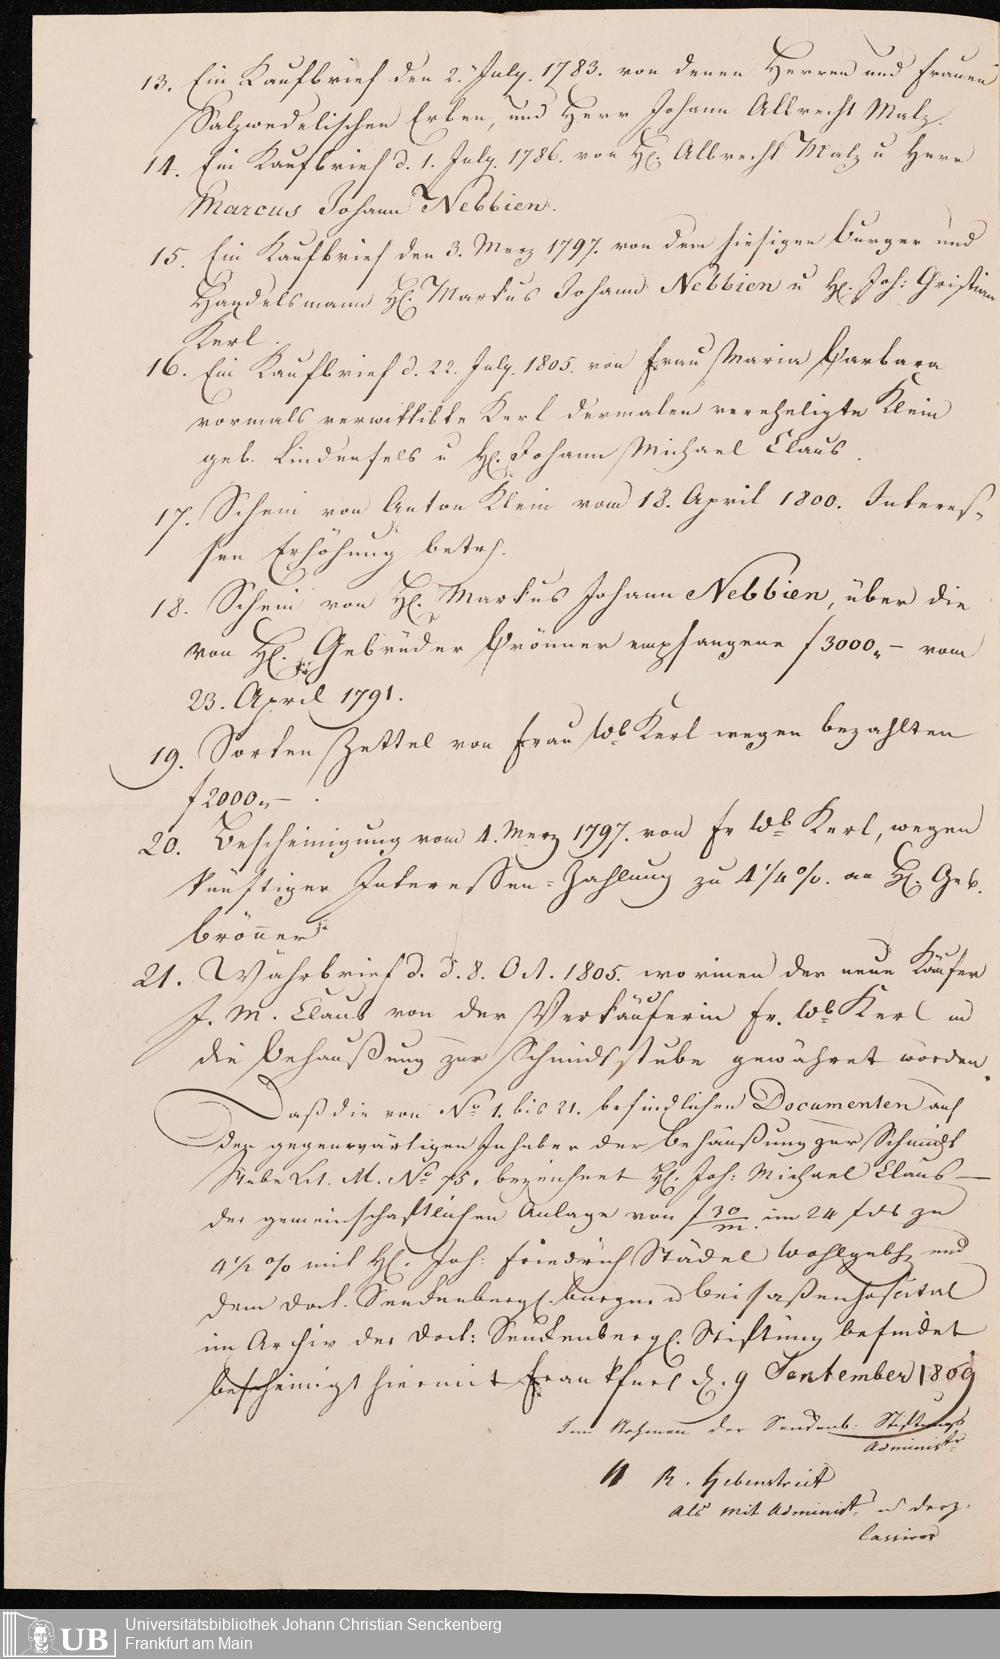 13. Ein Kaufbrief den 2. July. 1783. von denen Herren und Frauen
Salzwedelischen Erben, und Herr Johann Albrecht Malz.
14. Ein Kaufbrief d. 1. July. 1786. von H. Albrecht Malz u Herr
Marcus Johann Nebbien.
15. Ein Kaufbrief den 3. Merz 1797. von dem hiesigen Burger und
Handelsmann H. Markus Johann Nebbien u H. Joh: Christian
Kerl.
16. Ein Kaufbrief d. 22. July. 1805. von Frau Maria Barbara
vormals verwittibte Kerl dermalen verehligte Klein
geb. Lindenfels u H. Johann Michael Claus.
17. Schein von Anton Klein vom 18. April 1800. Interes-
sen Erhöhung betrf.
18. Schein von H. Markus Johann Nebbien, über die
von H. Gebrüder Brönner empfangene f 3000,,– vom
23. April 1791.
19. Sorten Zettel von Frau Wb Kerl wegen bezahlten
f 2000,,–.
20. Bescheinigung vom 4. Merz 1797. von Fr Wb Kerl, wegen
künftiger Interessen-Zahlung zu 4 1/4 %. an H. Geb.
Brönner
21. Währbrief d. d. 8. Oct. 1805. worinnen der neue Käufer
J. M. Claus von der Verkäuferin Fr. Wb Kerl in
die Behaußung zur Schmidtstube gewähret worden.
Daß die von No 1. bis 21. befindlichen Documenten auf
den gegenwärtigen Inhaber der Behaußung zur Schmidt
Stube Lit. M. No 75. bezeichnet H. Joh: Michael Claus –
der gemeinschaftlichen Anlage von f 30/m. im 24 fds zu
4 1/2 % mit H. Joh: Friedrich Städel Wohlgebh und
dem Doct. Senckenberg. Burger u Beisaßenhospital
im Archiv der Doct: Senckenberg. Stiftung befindet
bescheinigt hiermit Frankfurt d. 9 September 1809
Im Nahmen der Senckenb: Stiftungs
Administr
R. Hebenstreit
als mit Administ. u derz:
Cassirer
Universitätsbibliothek Johann Christian Senckenberg
UB Frankfurt am Main